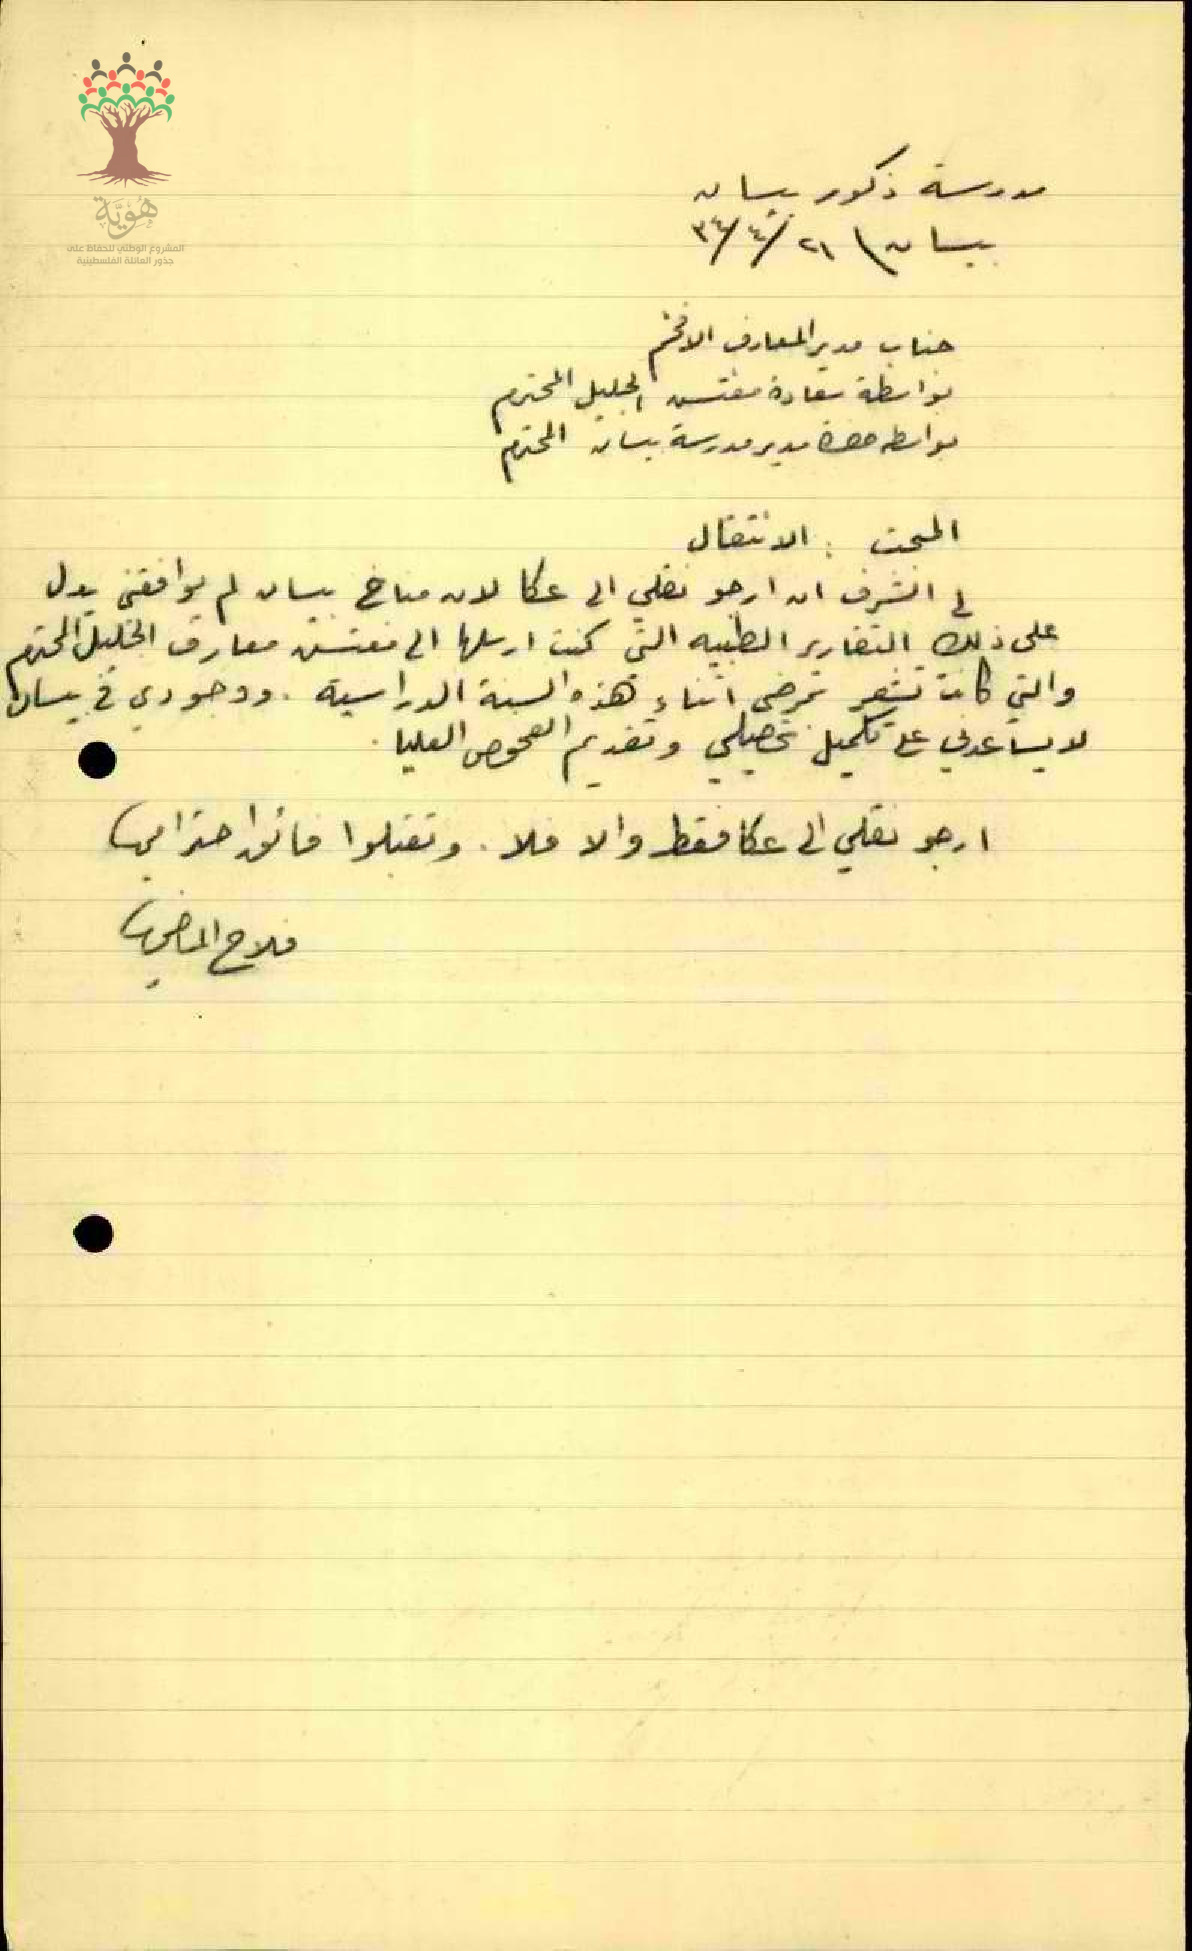 هُوِيَّة
المشروع الوطني للحفاظ على
جذور العائلة الفلسطينية
مدرسة ذكور بيسان
بيسان ٢١/٤/٣٤
جناب مدير المعارف الافخم
بواسطة سعادة مفتش الجليل المحترم
بواسطه حضرة مدير مدرسة بيسان المحترم
المبحث : الانتقال
لي الشرف ان ارجو نقلي الى عكا لان مناخ بيسان لم يوافقني يدل
على ذلك التقارير الطبيه التي كنت ارسلها الى مفتش معارف الجليل المحترم
والتي كانت تشعر بمرضي اثناء هذه السنة الدراسية . ووجودي في بيسان
لا يساعدني على تكميل تحصيلي وتقديم الفحوص العليا .
ارجو نقلي الى عكا فقط والا فلا . وتفضلوا فائق احترامي
فلاح الماضي